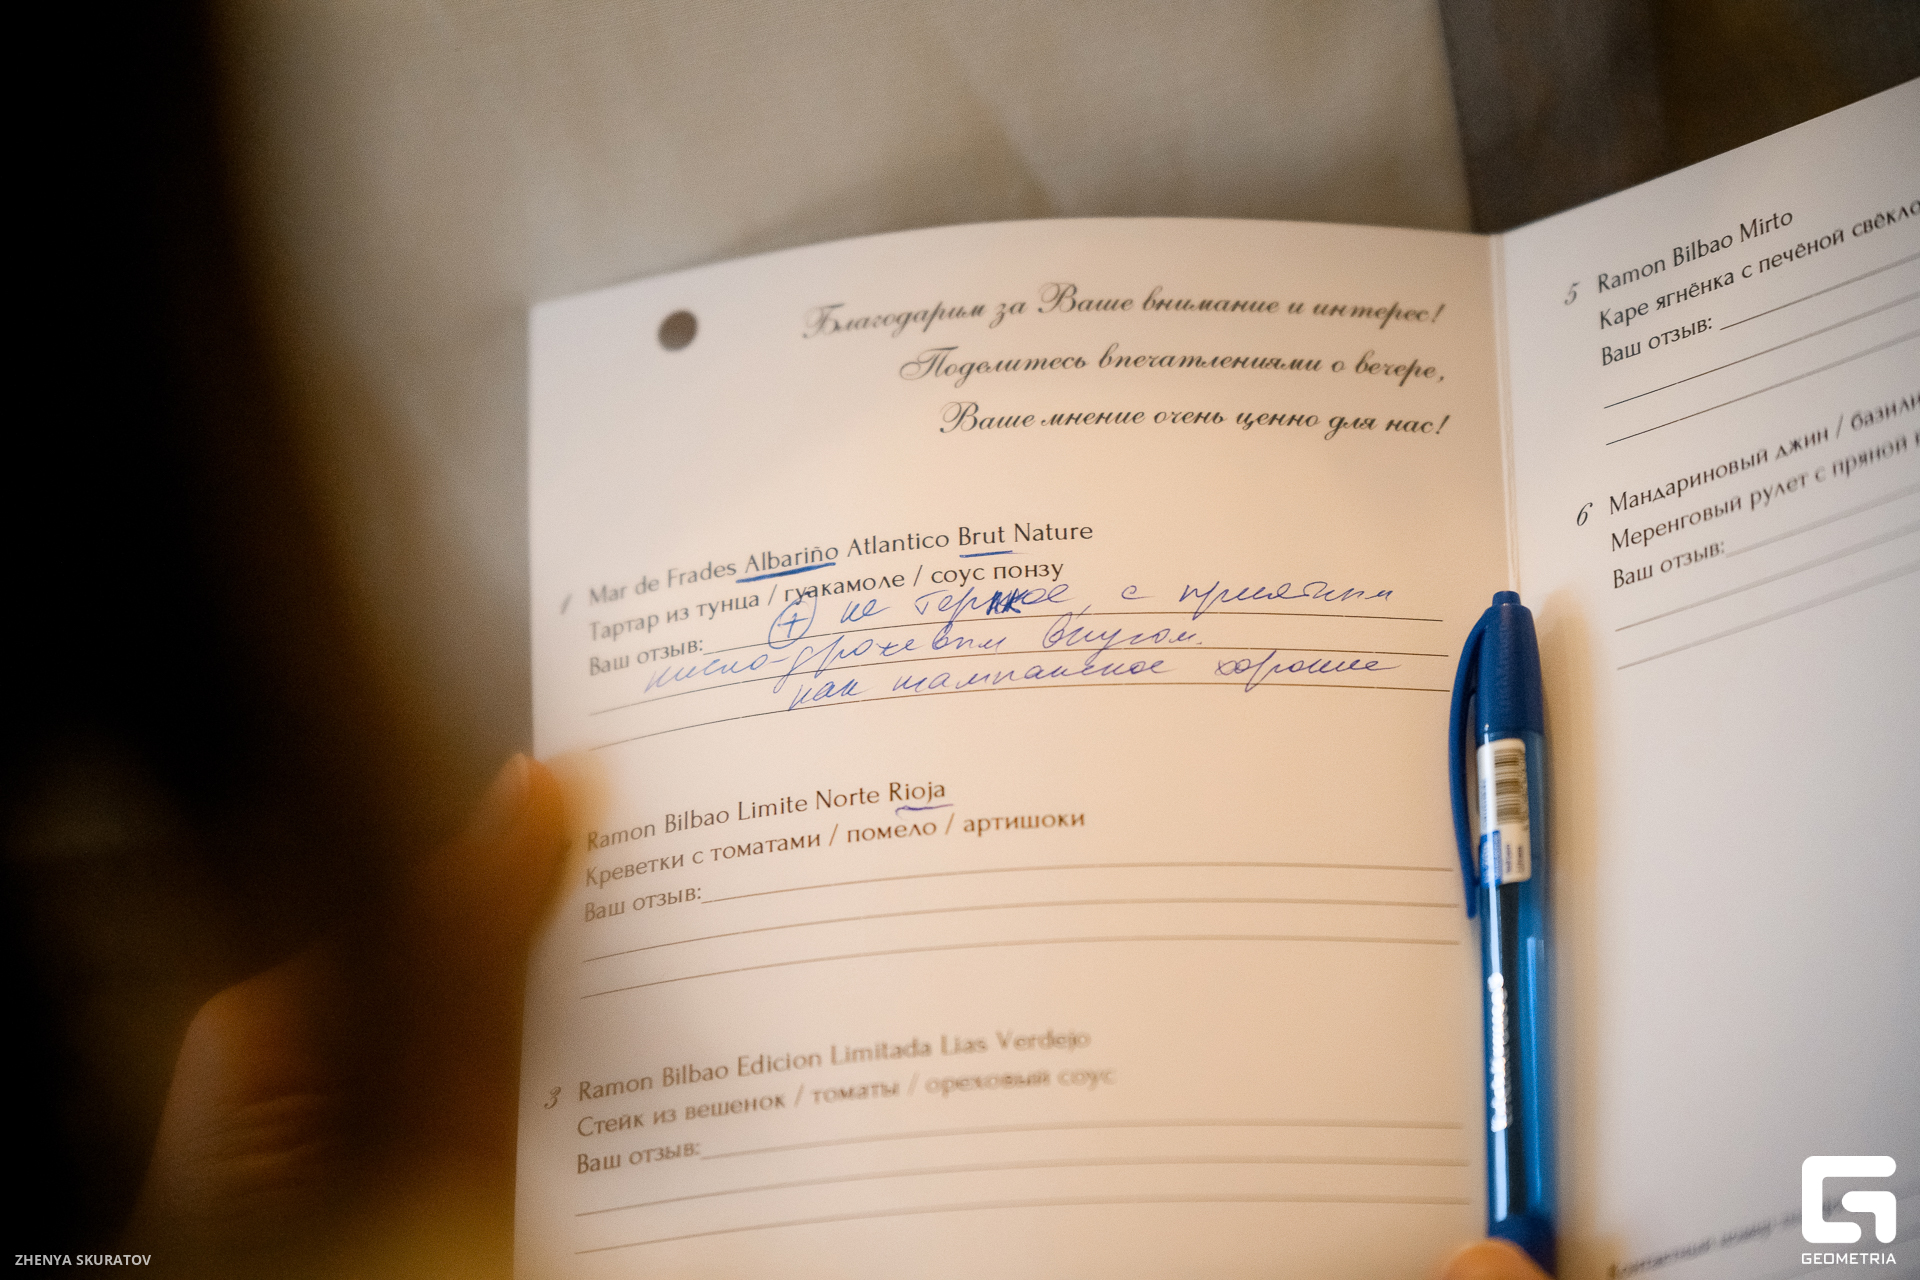 Благодарим за Ваше внимание и интерес!
Поделитесь впечатлениями о вечере,
Ваше мнение очень ценно для нас!
1 Mar de Frades Albariño Atlantico Brut Nature
Тартар из тунца / гуакамоле / соус понзу
Ваш отзыв: + не терпкое, с приятным
кисло-дрожевым вкусом.
как шампанское хорошее
Ramon Bilbao Limite Norte Rioja
Креветки с томатами / помело / артишоки
Ваш отзыв:
3 Ramon Bilbao Edicion Limitada Lias Verdejo
Стейк из вешенок / томаты / ореховый соус
Ваш отзыв:
5 Ramon Bilbao Mirto
Каре ягнёнка с печёной свёкло
Ваш отзыв:
6 Мандариновый джин / базили
Меренговый рулет с пряной
Ваш отзыв:
ZHENYA SKURATOV
GEOMETRIA